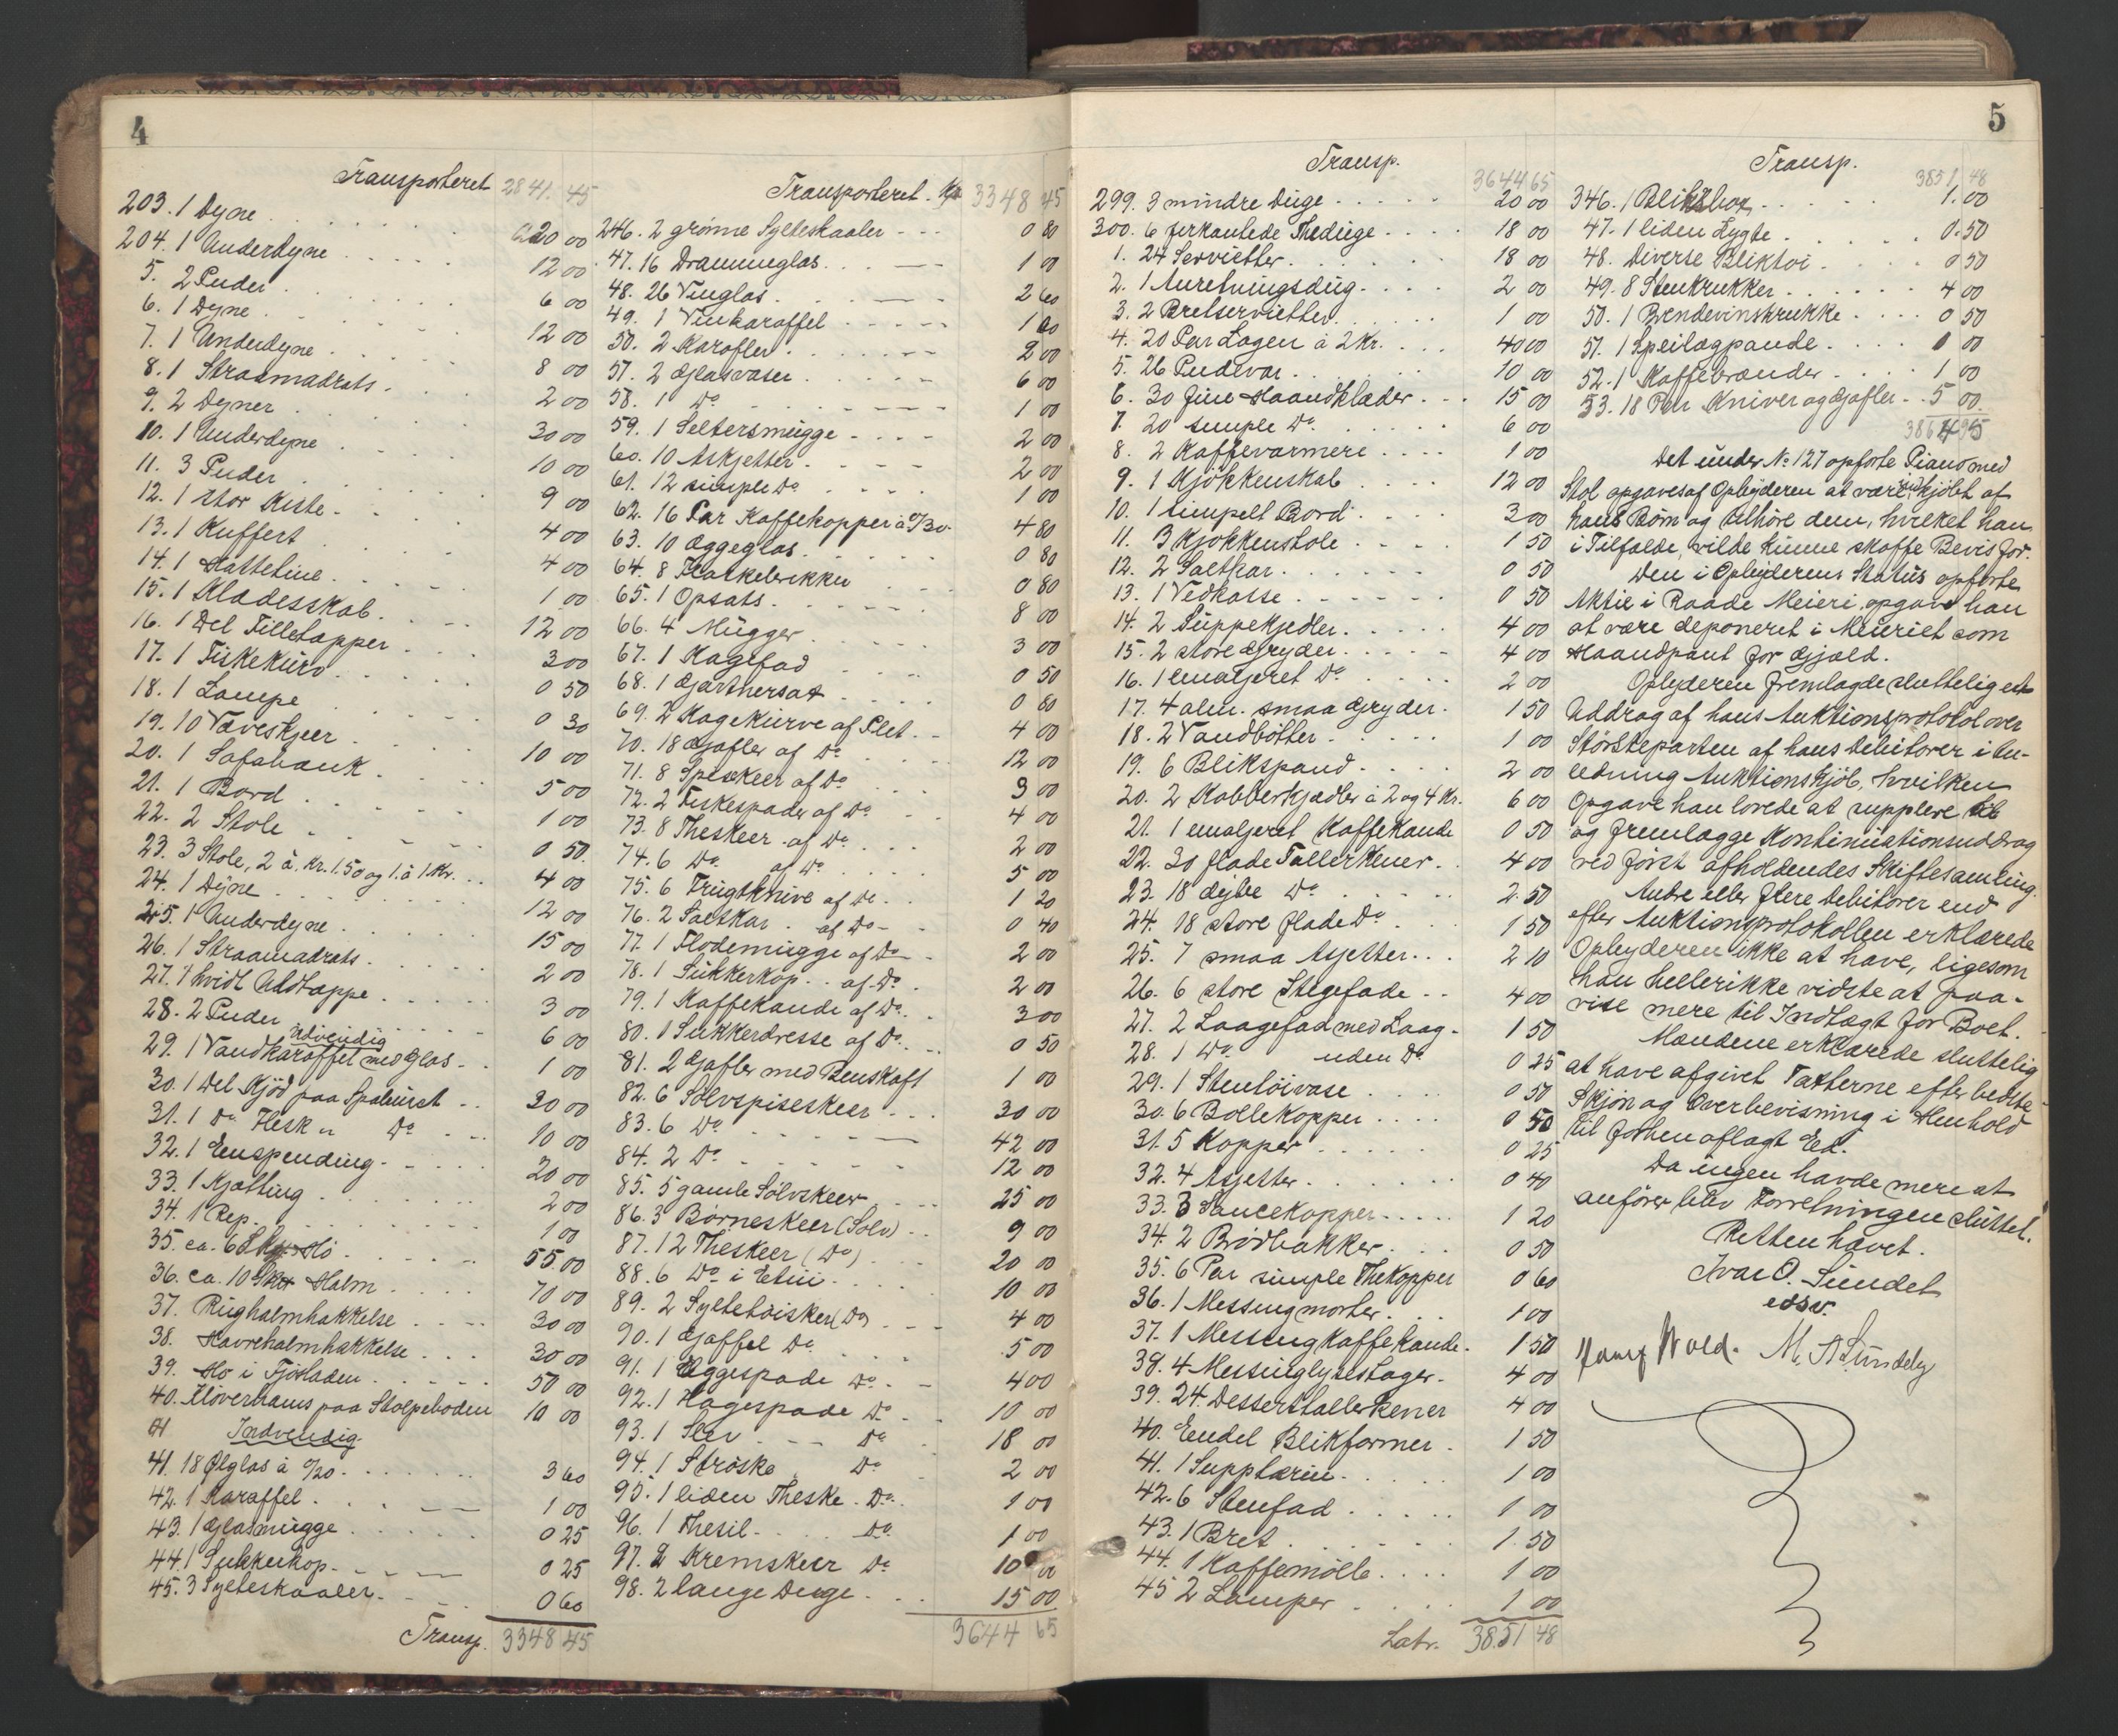 4
Transporteret 2841.45
203. 1 Dyne 20 00
204. 1 Underdyne 12 00
5. 2 Puder 6 00
6. 1 Dyne 12 00
7. 1 Underdyne 8 00
8. 1 Straamadrats 2 00
9. 2 Dyner 30 00
10. 1 Underdyne 10 00
11. 3 Puder 9 00
12. 1 stor Kiste 4 00
13. 1 Kuffert 4 00
14. 1 Hattetine 1 00
15. 1 Klædesskab 12 00
16. 1 Del Filletæpper 3 00
17. 1 Fiskekurv 0 50
18. 1 Lampe 0 30
19. 10 Væveskjeer 10 00
20. 1 Sofabænk 5 00
21. 1 Bord 1 00
22. 2 Stole 0 50
23. 3 Stole, 2 à Kr. 1.50 og 1 à 1 Kr. 4 00
24. 1 Dyne 12 00
25. 1 Underdyne 15 00
26. 1 Straamadrats 2 00
27. 1 hvidt Uldtæppe 3 00
28. 2 Puder 6 00
udvendig
29. 1 Vandkaraffel med Glas 1 00
30. 1 Del Kjød paa Spaburet 30 00
31. 1 Do Flesk " Do 10 00
32. 1 Eenspending 20 00
33. 1 Kjætting 2 00
34. 1 Rep 1 00
35. ca. 6 Skp. Hø 55.00
36. ca. 10 Halm 70 00
37. Rughalmhakkelse 30 00
38. Havrehalmhakkelse 30 00
39. Hø i Fjøsladen 50 00
40. Kløverhams paa Stolpeboden 10 00
Indvendig
41. 18 Ølglas à 0/20 3 60
42. 1 Karaffel 1 00
43. 1 Glasmugge 0 25
44. 1 Sukkerkop 0 25
45. 3 Sylteskaaler 0 60
Transp. 3348 45
Transporteret Kr. 3348 45
246. 2 grønne Sylteskaaler 0 80
47. 16 Dramineglas 1 00
48. 26 Vinglas 2 60
49. 1 Vinkaraffel 1 00
50. 2 Karafler 2 00
57. 2 Glasvaser 6 00
58. 1 Do 1 00
59. 1 Seltersmugge 2 00
60. 10 Askjetter 2 00
61. 12 simple Do 1 00
62. 16 Par Kaffekopper à 0/30 4 80
63. 10 Æggeglas 0 80
64. 8 Flaskebrikker 0 80
65. 1 Opsats 8 00
66. 4 Mugger 3 00
67. 1 Kagefad 0 50
68. 1 Gartnersax 0 80
69. 2 Kagekurve af Plet 4 00
70. 18 Gafler af Do 12 00
71. 8 Spiskeer af Do 3 00
72. 2 Fiskespader af Do 4 00
73. 8 Theskeer af Do 2 00
74. 6 Do af Do 5 00
75. 6 Frugtknive af Do 1 20
76. 2 Saltkar af Do 0 40
77. 1 Flødemugge af Do 2 00
78. 1 Sukkerkop af Do 2 00
79. 1 Kaffekande af Do 3 00
80. 1 Sukkerdresse af Do 0 50
81. 2 Gafler med Benskaft 1 00
82. 6 Sølvspiseskeer 30 00
83. 6 Do 42 00
84. 2 Do 12 00
85. 5 gamle Sølvskeer 25 00
86. 3 Børneskeer (Sølv) 9 00
87. 12 Theskeer (Do) 20 00
88. 6 Do i Etui 10 00
89. 2 Syltetøisker (Do) 4 00
90. 1 Gaffel Do 5 00
91. 1 Eggespade Do 4 00
92. 1 Kagespade Do 10 00
93. 1 Slev Do 18 00
94. 1 Strøske Do 2 00
95. 1 liden Theske Do 1 00
96. 1 Thesil Do 1 00
97. 2 Kremskeer Do 10 00
98. 2 lange Duge 15 00
3644 65
5
Transp. 3644 65
299. 3 mindre Duge 20 00
300. 6 firkantede Theduge 18 00
1. 24 Servietter 18 00
2. 1 Anretningsdug 2 00
3. 2 Bretservietter 1 00
4. 20 Par Lagen à 2 Kr. 40 00
5. 26 Pudevar 10 00
6. 30 fine Haandklæder 15 00
7. 20 simple Do 6 00
8. 2 Kaffevarmere 1 00
9. 1 Kjøkkenskab 12 00
10. 1 simpelt Bord 3 00
11. 3 Kjøkkenstole 1 50
12. 2 Saltkar 0 50
13. 1 Vedkasse 0 50
14. 2 Suppekjedler 4 00
15. 2 store Gryder 4 00
16. 1 emaljeret Do 2 00
17. 4 alm. smaa Gryder 1 50
18. 2 Vandbøtter 1 00
19. 6 Blikspand 2 00
20. 2 Kobberkjædler à 2 og 4 Kr. 6 00
21. 1 emaljeret Kaffekande 0 50
22. 30 flade Tallerkener 4 00
23. 18 dybe Do 2.50
24. 18 store flade Do 1 50
25. 7 smaa Asjetter 2 10
26. 6 store Stegefade 4 00
27. 2 Laagefad med Laag 1 50
28. 1 Do uden Do 0 25
29. 1 Stentøivase 0 50
30. 6 Bollekopper 0 50
31. 5 Kopper 0 25
32. 4 Asjetter 0 40
33. 3 Saucekopper 1 20
34. 2 Brødbakker 0 50
35. 6 Par simple Thekopper 0 60
36. 1 Messingmorter 1 00
37. 1 Messingkaffekande 1 50
38. 4 Messinglysestager 4 00
39. 24 Desserttallerkener 4 00
40. Endel Blikformer 1 50
41. 1 Supptærin 1 00
42. 6 Stenfad 1 00
43. 1 Bret 1.50
44. 1 Kaffemølle 1 00
45 2 Lamper 1 00
Latr. 3851 48
Transp. 3851 48
346. 1 1.00
47. 1 liden Lygte 0.50
48. Diverse Bliktøi 0 50
49. 8 Stenkrukker 4 00
50. 1 Brendevinskrukke 0 50
51. 1 Speilægpande 1 00
52. 1 Kaffebrænder 1 00
53. 18 Par Kniver og Gafler 5 00
Det under No 127 opførte Piano med
Stol opgaves af Opbyderen at være indkjøbt af
hans Børn og tilhøre dem, hvilket han
i Tilfælde vilde kunne skaffe Bevis for.
Den i Opbyderens Status opførte
Aktie i Raade Meieri opgav han
at være deponeret i Meieriet som
Haandpant for Gjæld.
Opbyderen fremlagde sluttelig et
Uddrag af hans Auktionsprotokol over
Størsteparten af hans Debitorer i An-
ledning Auktionskjøb, hvilken
Opgave han lovede at supplere
og fremlægge Kontinuationsuddrag
ved først afholdendes Skiftesamling.
Andre eller flere Debitorer end
efter Auktionsprotokollen erklærede
Opbyderen ikke at have, ligesom
han heller ikke vidste at paa-
vise mere til Indtægt for Boet.
Mændene erklærede sluttelig
at have afgivet Taxterne efter bedste
Skjøn og Overbevisning i Henhold
til forhen aflagt Ed.
Da ingen havde mere at
anføre blev Forretningen sluttet.
Retten hævet.
Ivar O. Sundet
edsv.
Wold. M. A. Sundby